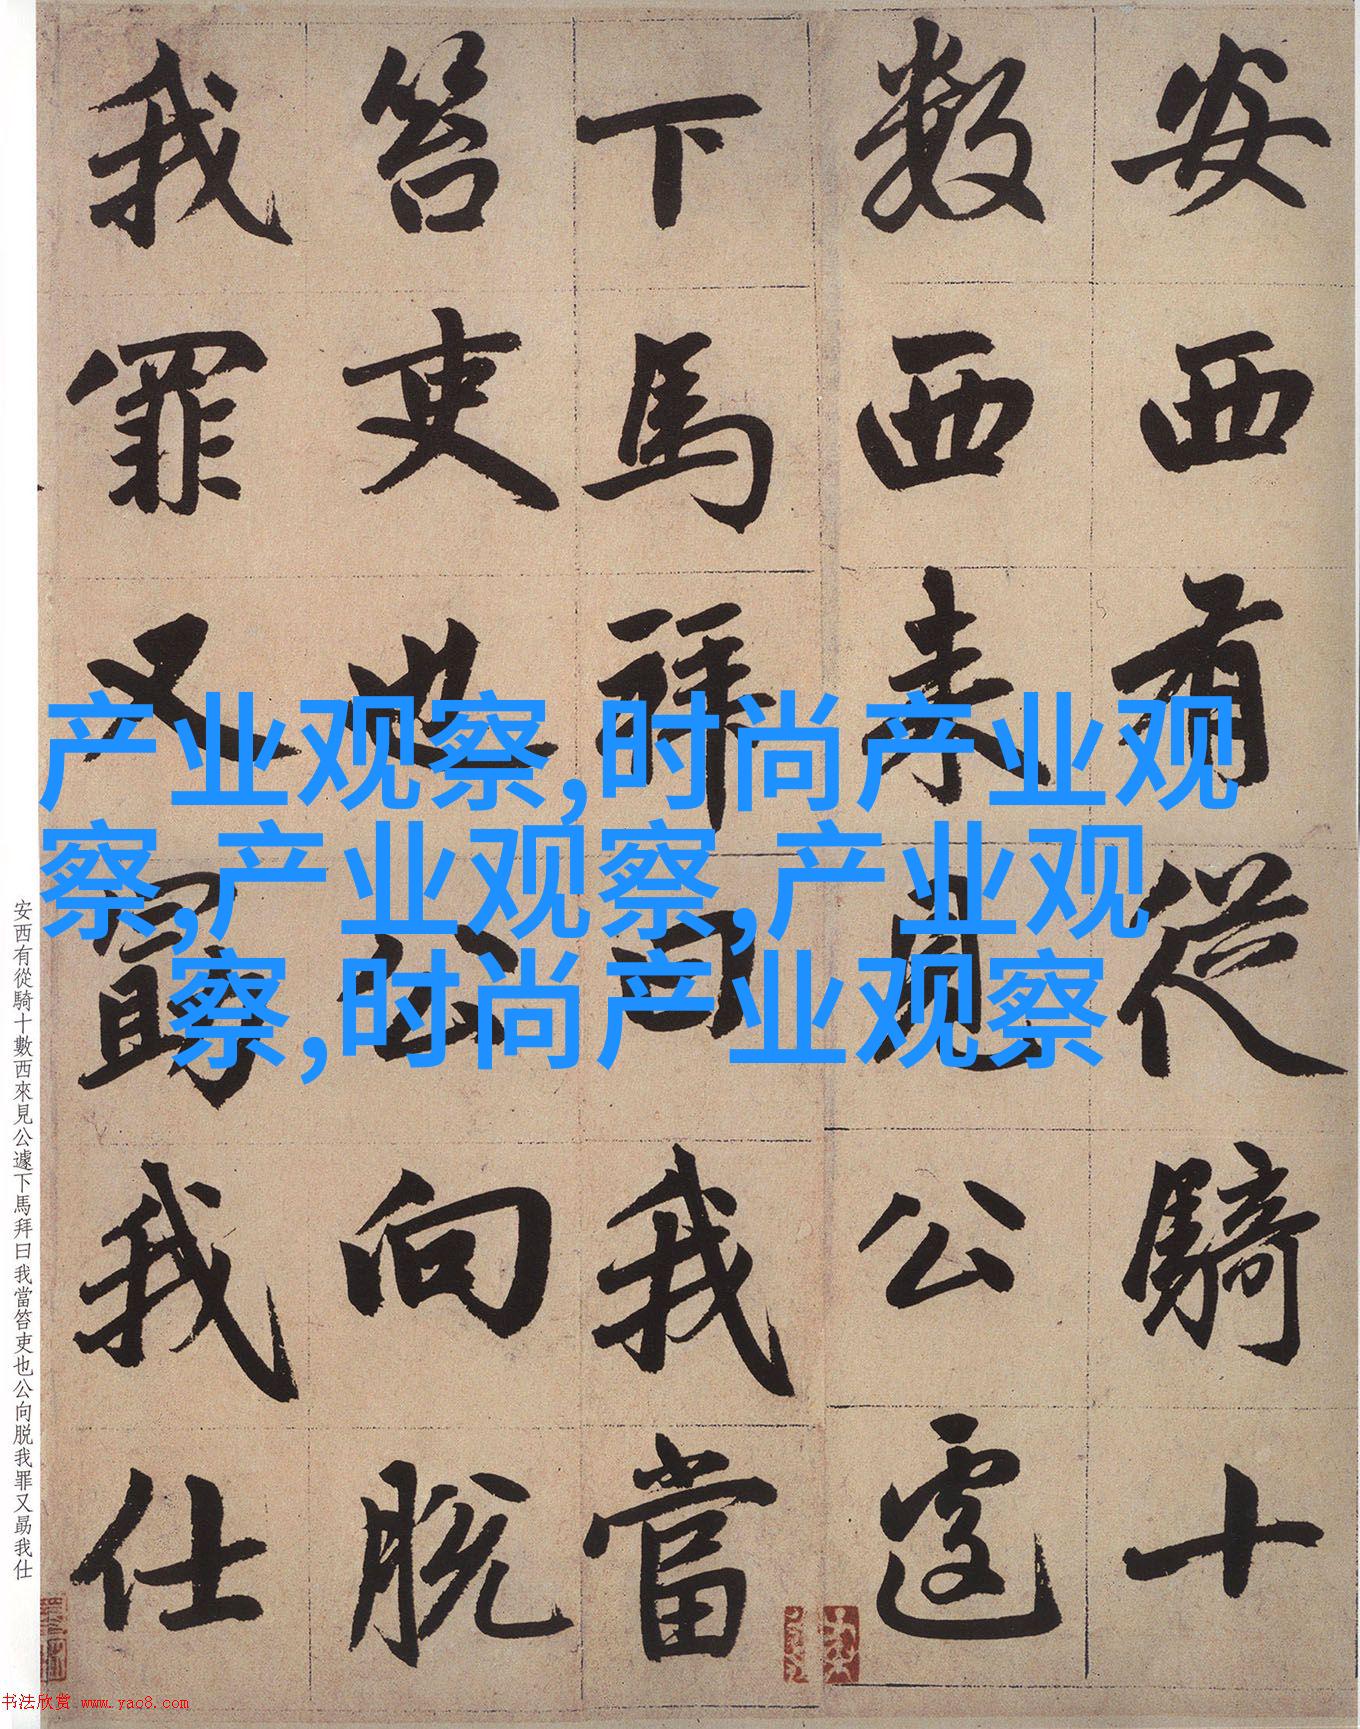 安西有從騎十
數西來見公遽
下馬拜曰我當
笞吏也公向脱
我罪又勗我仕
产业观察,时尚产业观
察,产业观察,产业观
察,时尚产业观察
安西有從騎十數西來見公遽下馬拜曰我當笞吏也公向脱我罪又勗我仕
书法欣赏 www.yac8.com